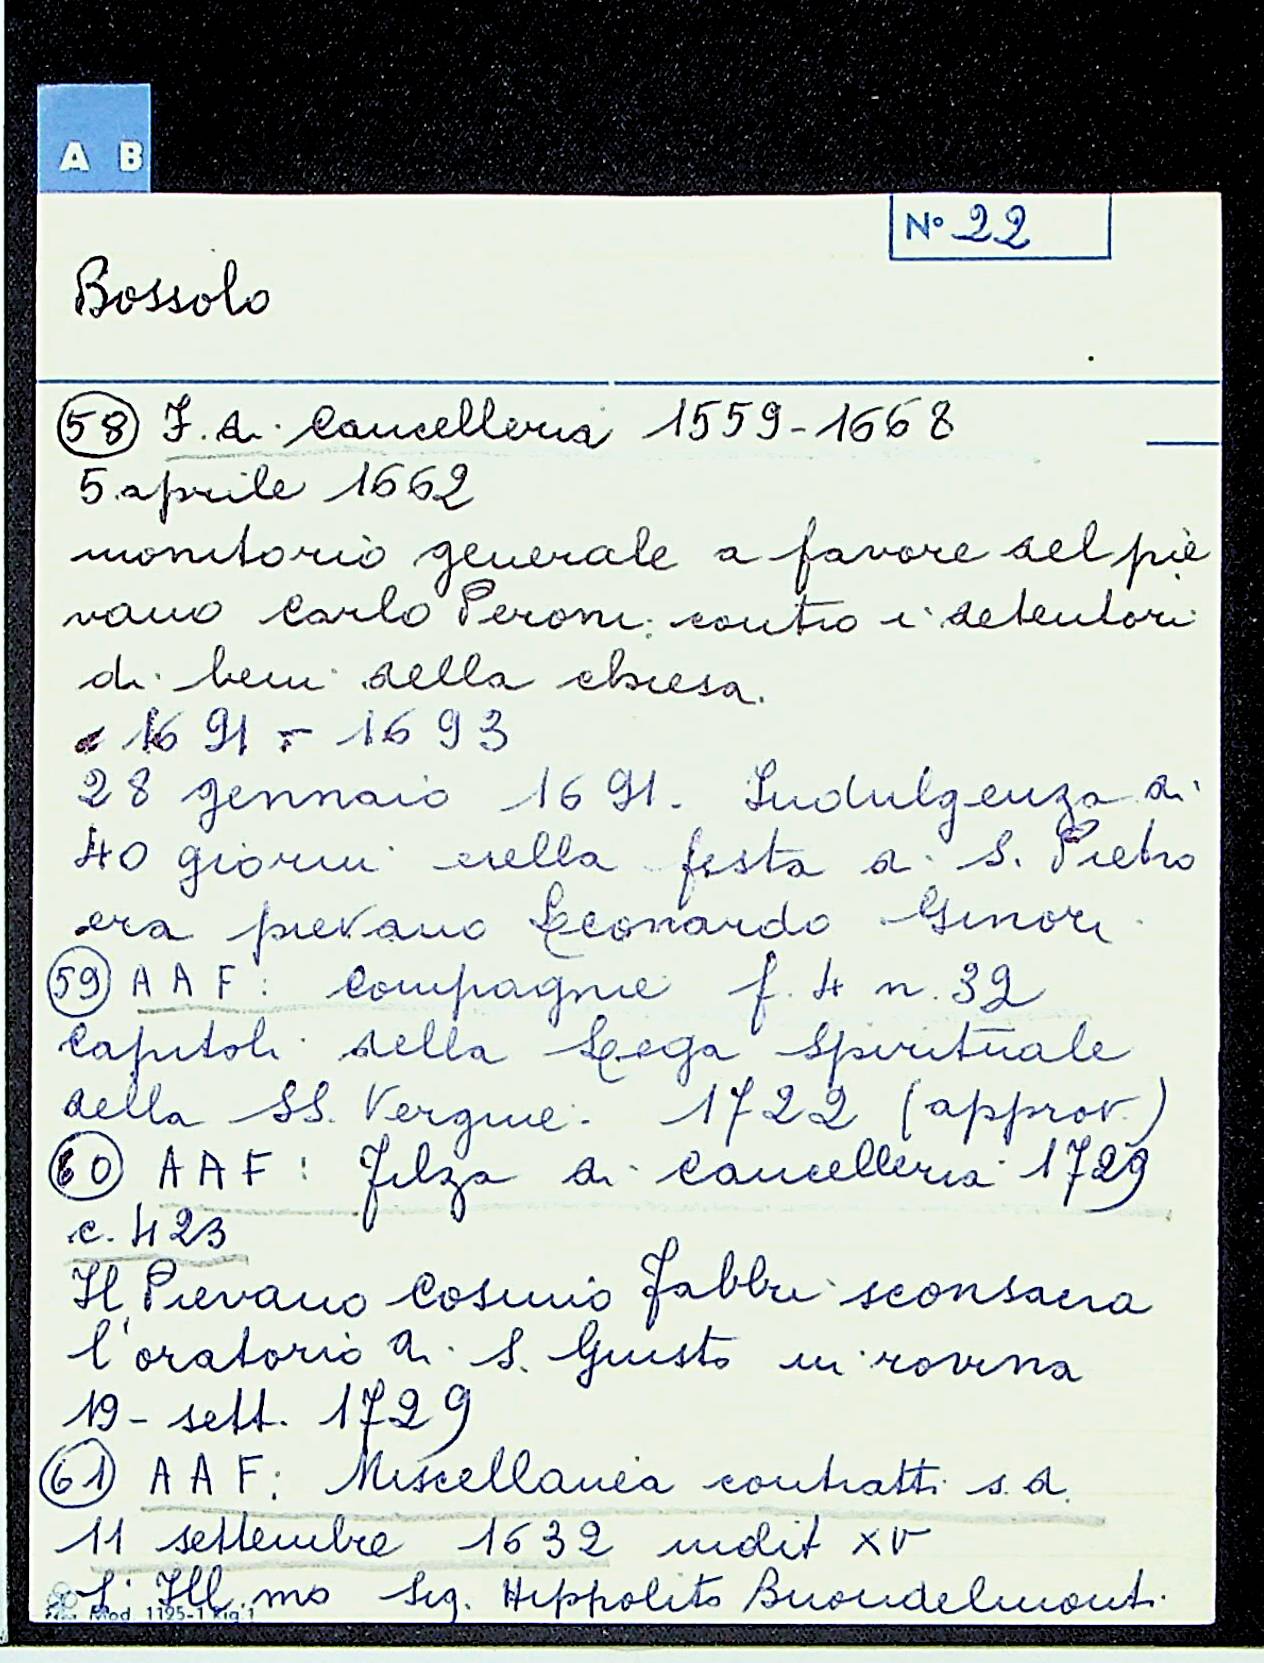 A B
N° 22
Bossolo
58 F. di Cancelleria 1559-1668
5 aprile 1662
monitorio generale a favore del pie
vano Carlo Peroni contro i detentori
di beni della chiesa.
1691 - 1693
28 gennaio 1691. Indulgenza di
40 giorni nella festa di S. Pietro
era pievano Leonardo Ginori
59 A A F: Compagnie f. 4 n. 32
Capitoli della Lega Spirituale
della SS. Vergine. 1722 (approv.)
60 A A F: Filza di Cancelleria 1729
c. 423
Il Pievano Cosimo Fabbri sconsacra
l'oratorio di S. Giusto in rovina
19 - sett. 1729
61 A A F: Miscellanea contratti s.d.
11 settembre 1632 indit XV
L' Ill.mo Sig. Hippolito Buondelmonti
Mod. 1195-1